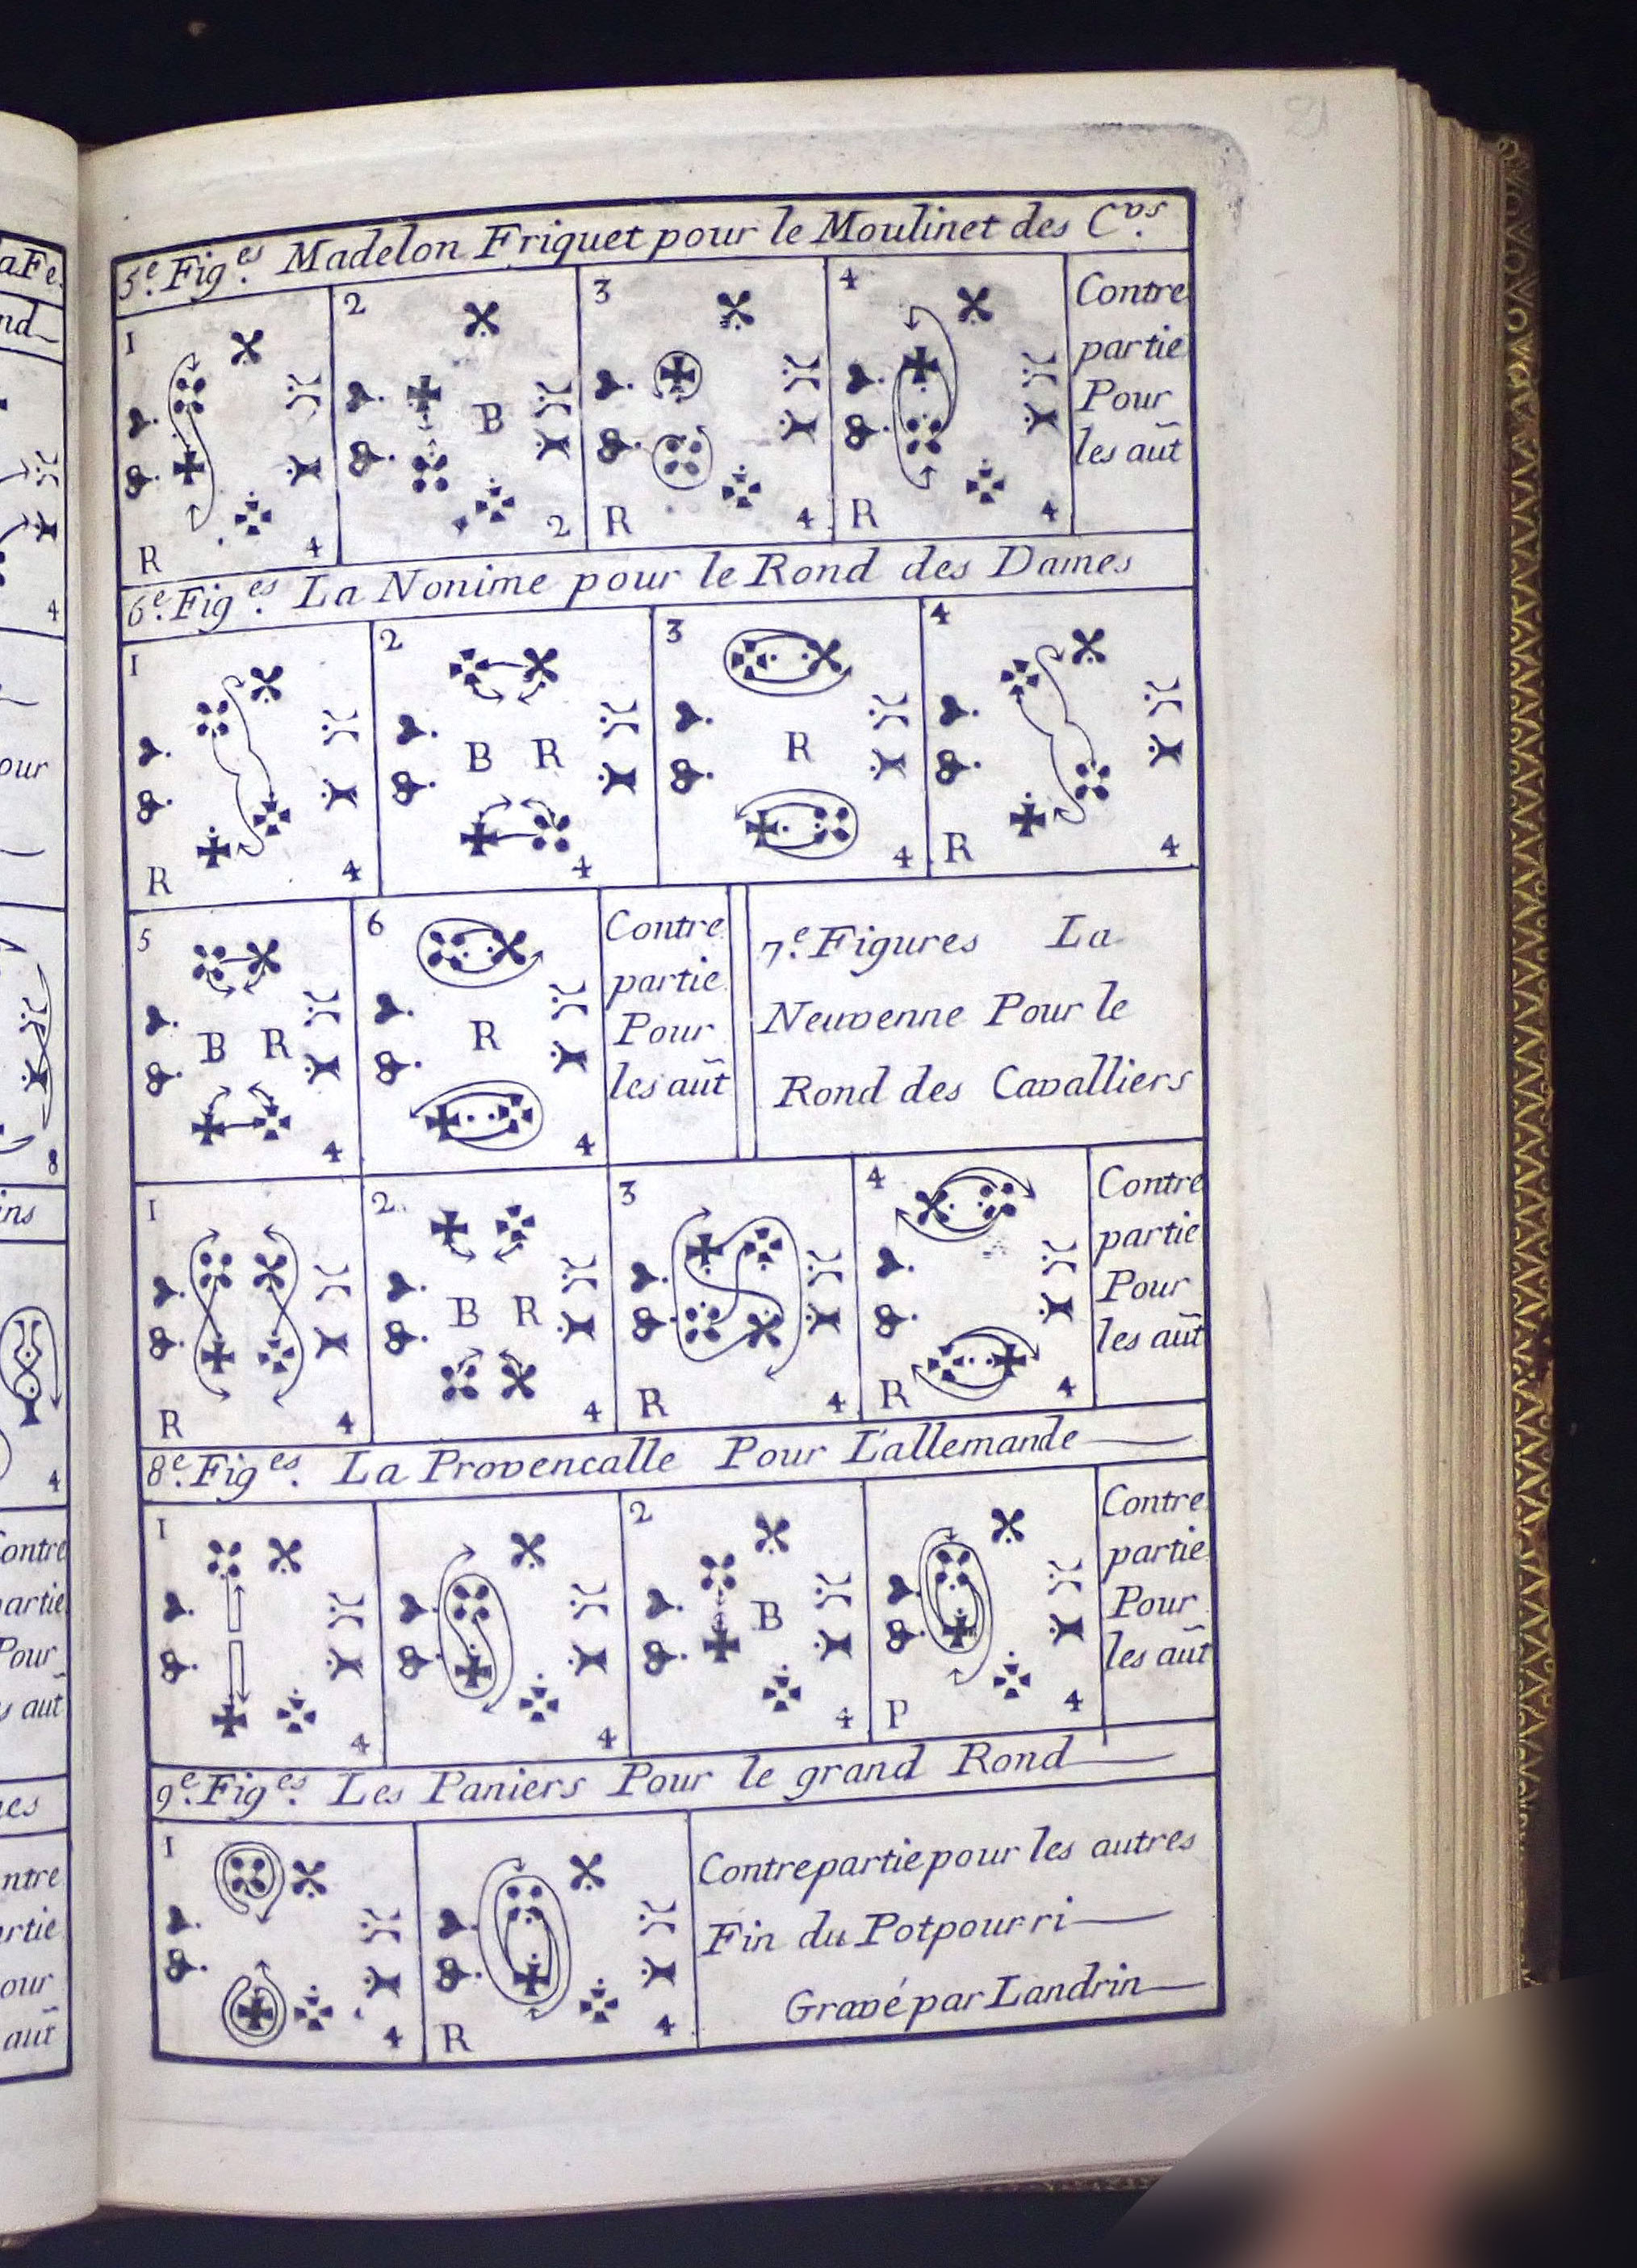 5.e Fig.es Madelon Friquet pour le Moulinet des C.vs
1 2 3 4 Contre
partie
Pour
les aut̃
B
R 4 2 R 4 R 4
6.e Fig.es La Nonime pour le Rond des Dames
1 2 3 4
B R R
R 4 4 4 R 4
5 6 Contre
partie
Pour
les aut̃
B R R
4 4
7.e Figures La
Neuvenne Pour le
Rond des Cavalliers
1 2. 3 4 Contre
partie
Pour
les aut̃
B R
R 4 4 R 4 R 4
8.e Fig.es La Provencalle Pour L'allemande
1 2 Contre
partie
Pour
les aut̃
B
4 4 4 P 4
9.e Fig.es Les Paniers Pour le grand Rond
1
4 R 4
Contrepartie pour les autres
Fin du Potpourri
Gravé par Landrin